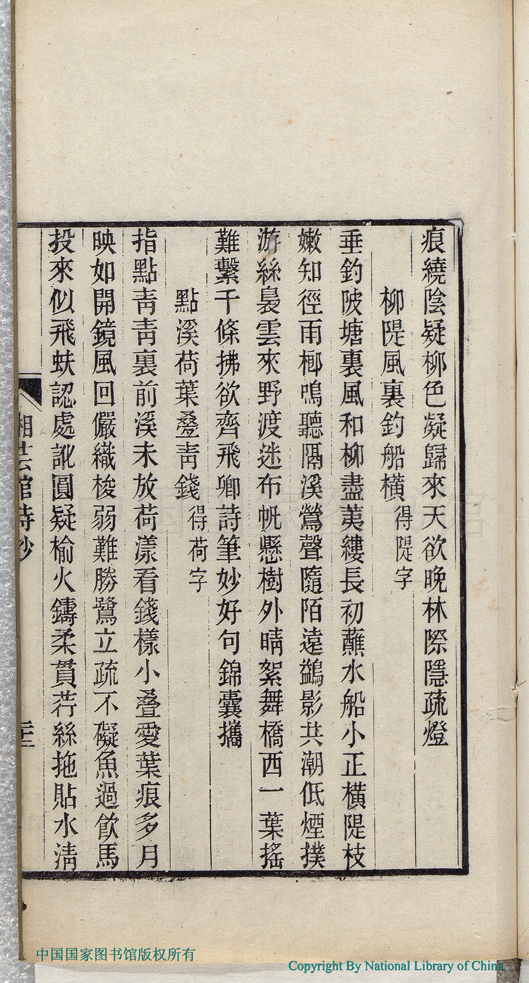 痕繞陰疑柳色凝歸來天欲晚林際隱疏燈
柳隄風裏釣船橫得隄字
垂釣陂塘裏風和柳盡荑縷長初蘸水船小正橫隄枝
嫩知徑雨榔鳴聽隔溪鶯聲隨陌遠鷁影共潮低煙撲
游絲裊雲來野渡迷布帆懸樹外晴絮舞橋西一葉搖
難繫千條拂欲齊飛卿詩筆妙好句錦囊攜
點溪荷葉疊青錢得荷字
指點青青裏前溪未放荷漾看錢樣小疊愛葉痕多月
映如開鏡風回儼織梭弱難勝鷺立疏不礙魚過飲馬
投來似飛蚨認處訛圓疑榆火鑄柔貫荇絲拖貼水淸
湘芸館詩鈔
中国国家图书馆版权所有
Copyright By National Library of China